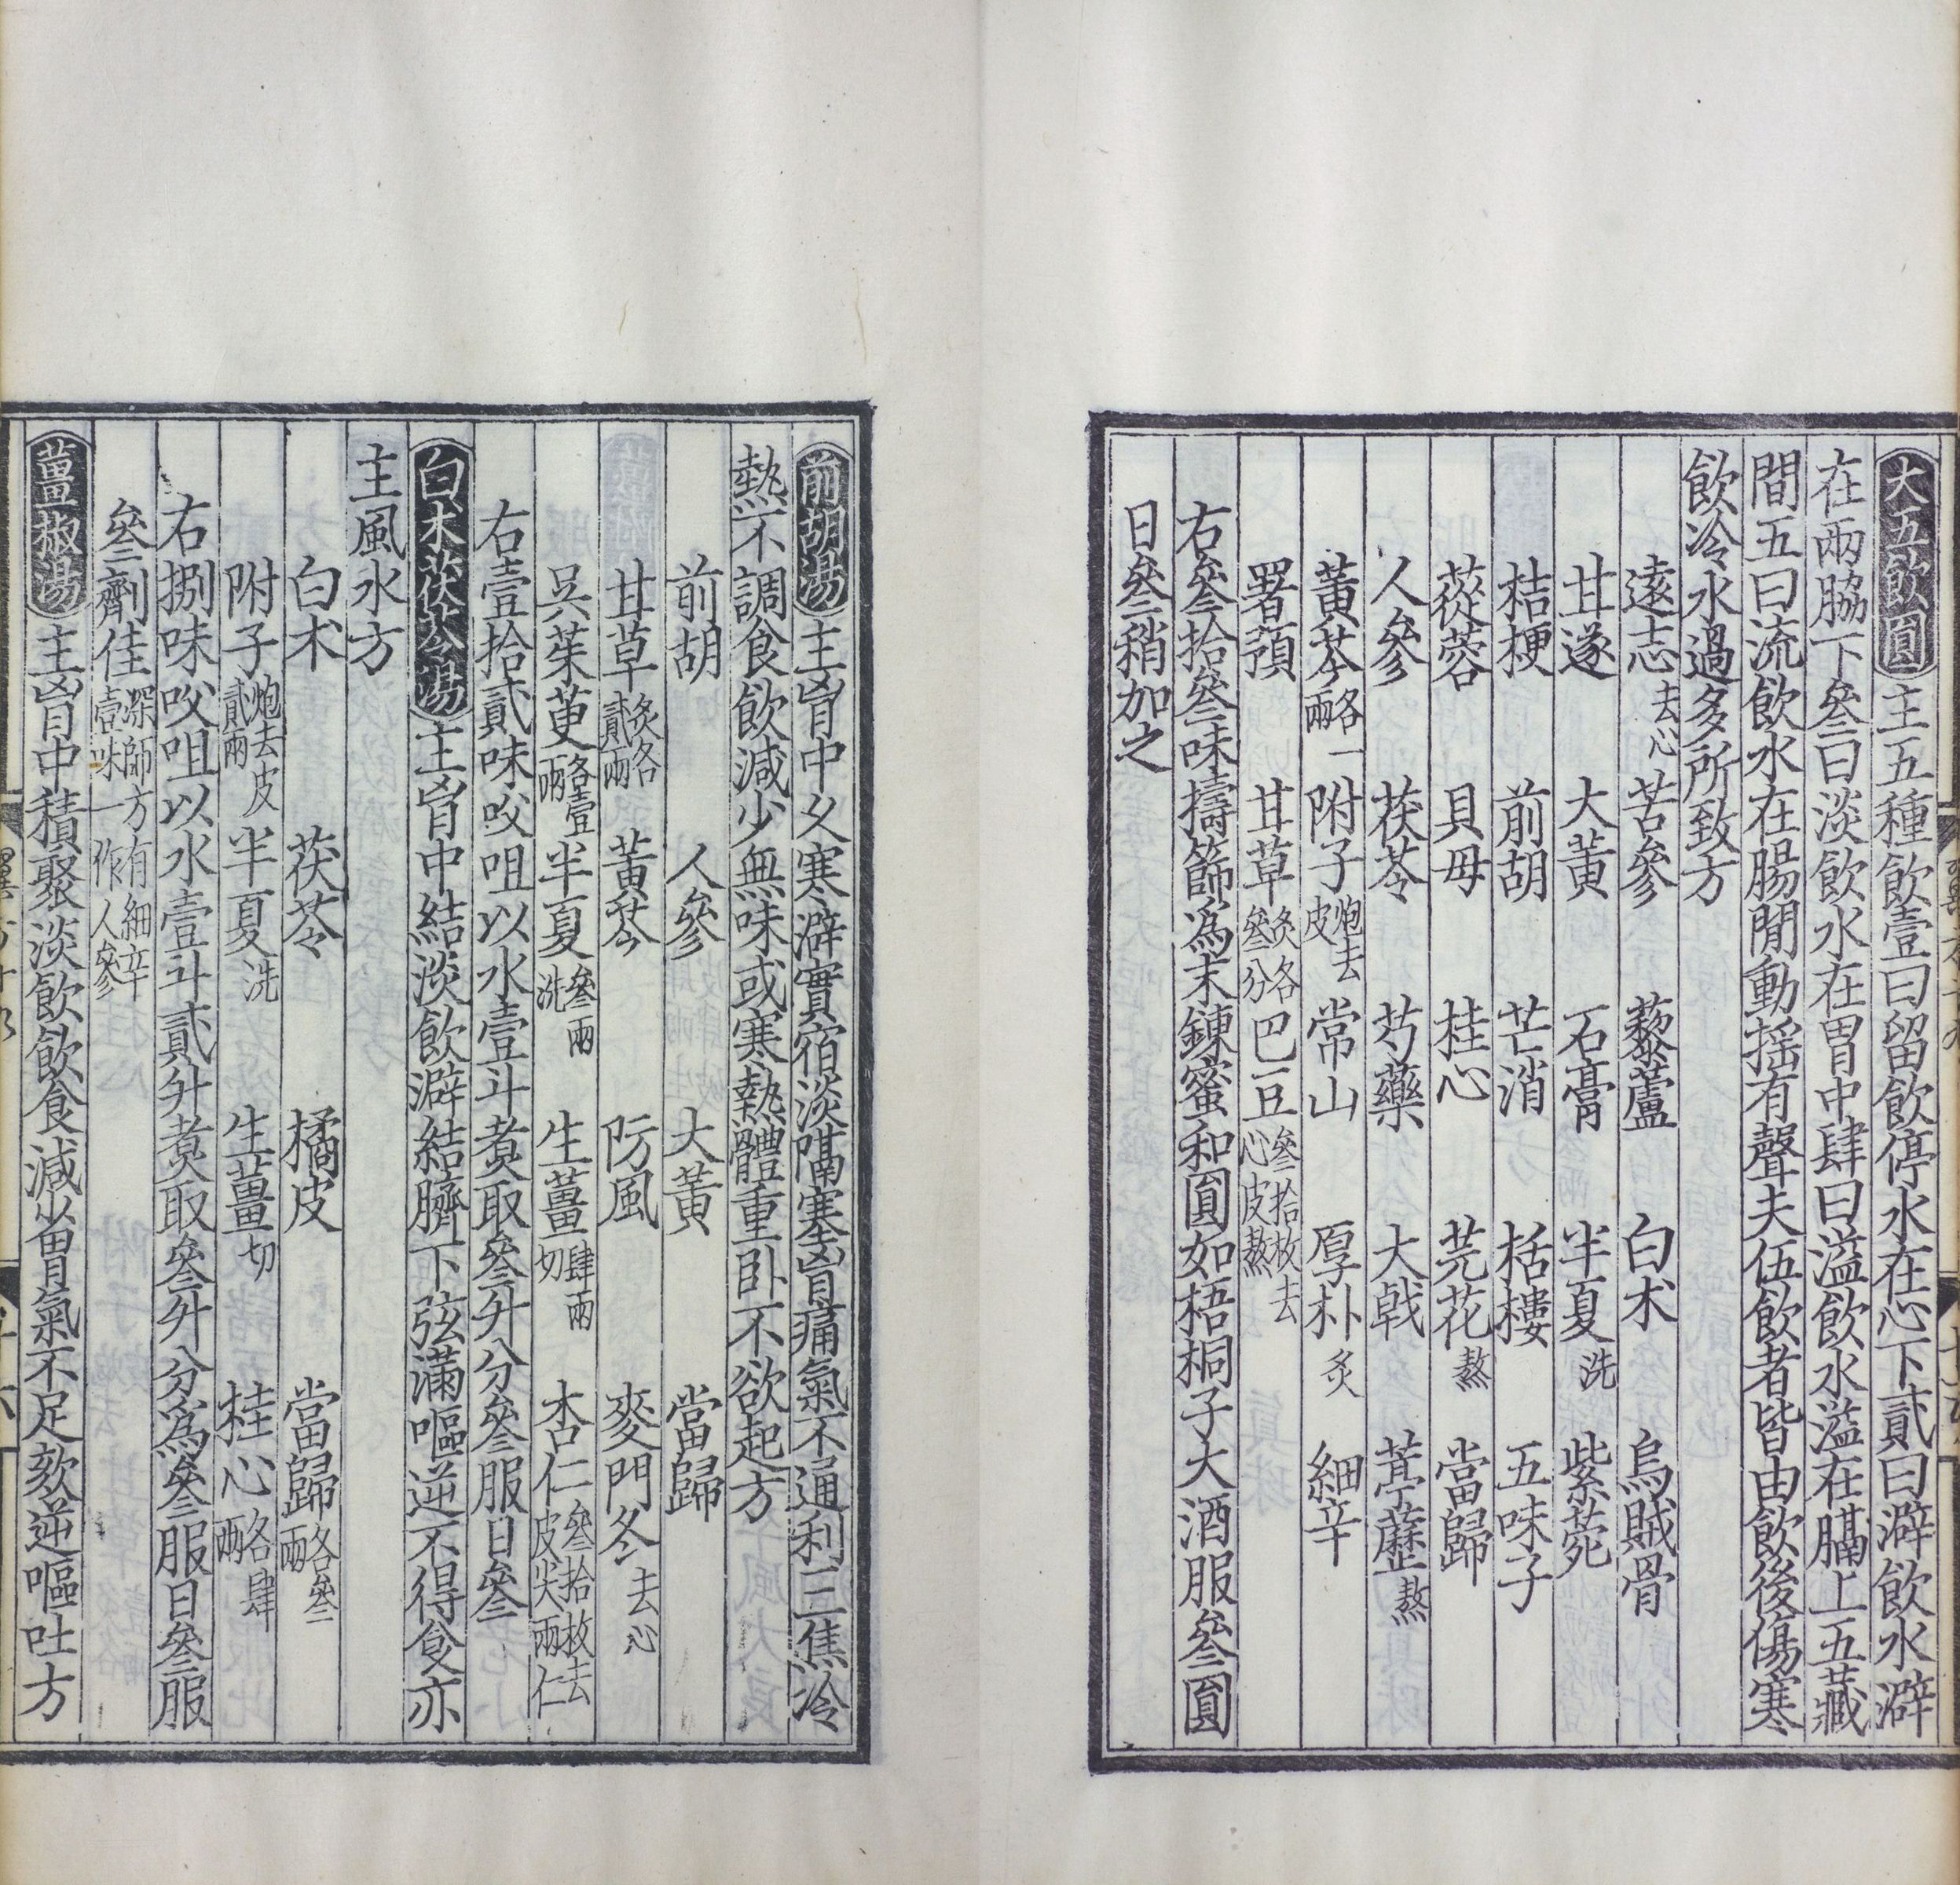 大五飲圓主五種飲壹曰留飲停水在心下貳曰澼飲水澼
在兩脇下叄曰淡飲水在胃中肆曰溢飲水溢在膈上五藏
間五曰流飲水在腸間動摇有聲夫伍飲者皆由飲後傷寒
飲冷水過多所致方
遠志去心 苦參 藜蘆 白术 烏賊骨
甘遂 大黄 石膏 半夏洗 紫菀
桔梗 前胡 芒消 栝樓 五味子
蓯蓉 貝母 桂心 芫花熬 當歸
人參 茯苓 芍藥 大戟 葶藶熬
黄芩各一兩 附子炮去皮 常山 厚朴炙 細辛
署預 甘草炙各叄分 巴豆叄拾枚去心皮熬
右叄拾叄味擣篩爲末鍊蜜和圓如梧桐子大酒服叄圓
日叄稍加之
前胡湯主胷中乆寒澼實宿淡隔塞胷痛氣不通利三焦冷
熱不調食飲減少無味或寒熱體重卧不欲起方
前胡 人參 大黄 當歸
甘草炙各貳兩 黄芩 防風 麥門冬去心
吳茱萸各壹兩 半夏叄兩洗 生薑肆兩切 杏仁叄拾枚去皮尖兩仁
右壹拾貳味㕮咀以水壹斗煮取叄升分叄服日叄
白术茯苓湯主胷中結淡飲澼結臍下弦滿嘔逆不得食亦
主風水方
白术 茯苓 橘皮 當歸各叄兩
附子炮去皮貳兩 半夏洗 生薑切 桂心各肆兩
右捌味㕮咀以水壹斗貳升煮取叄升分爲叄服日叄服
叄劑佳深師方有細辛壹味一作人參
薑椒湯主胷中積聚淡飲飲食減少胃氣不足欬逆嘔吐方